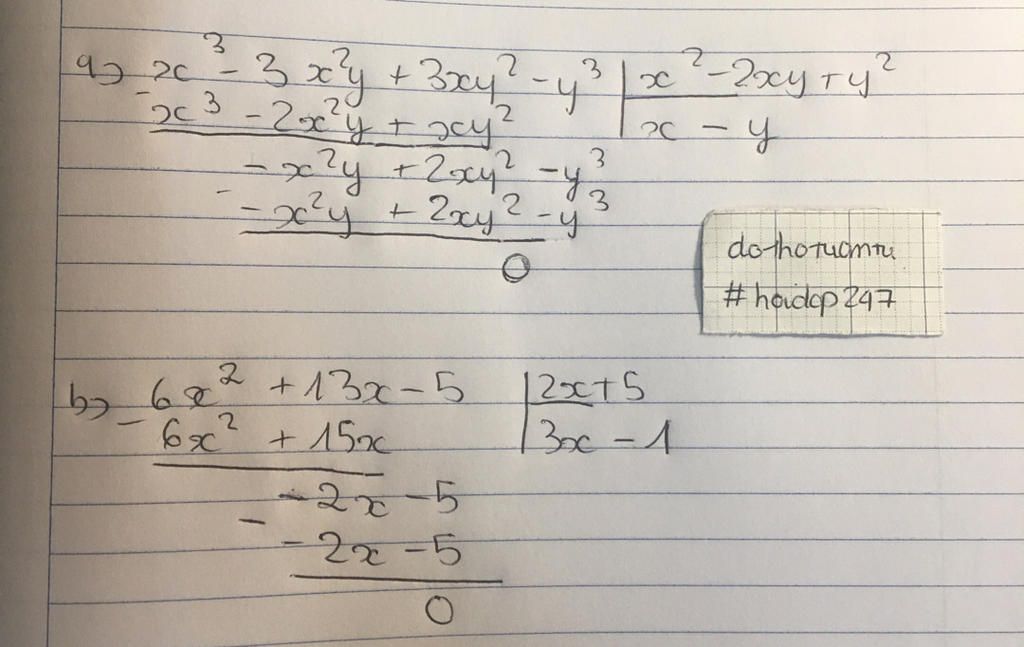 a) x³ - 3x²y + 3xy² - y³ | x² - 2xy + y²
- x³ - 2x²y + xy² | x - y
- x²y + 2xy² - y³
- - x²y + 2xy² - y³
0
#hoidap247
b) 6x² + 13x - 5 | 2x + 5
- 6x² + 15x | 3x - 1
- 2x - 5
- - 2x - 5
0